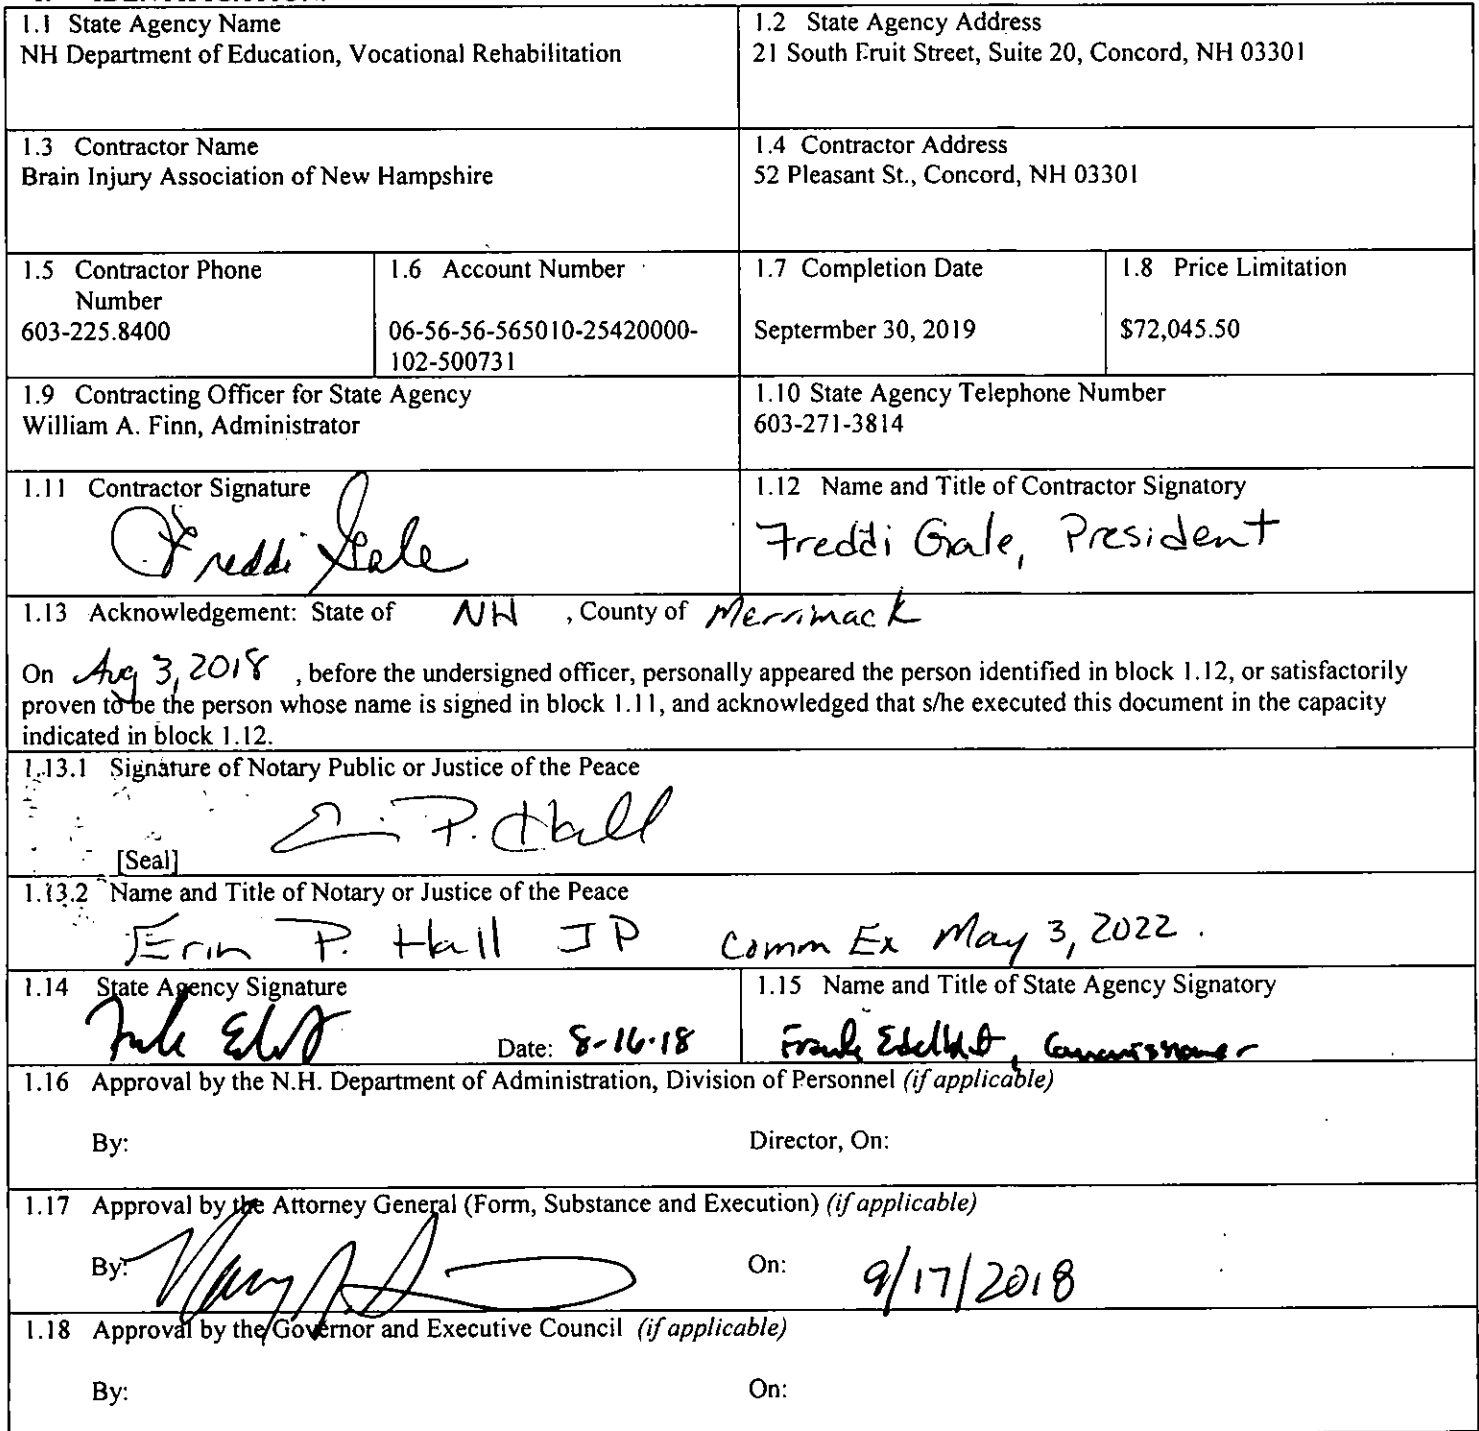 1.1 State Agency Name
NH Department of Education, Vocational Rehabilitation
1.2 State Agency Address
21 South Fruit Street, Suite 20, Concord, NH 03301
1.3 Contractor Name
Brain Injury Association of New Hampshire
1.4 Contractor Address
52 Pleasant St., Concord, NH 03301
1.5 Contractor Phone
Number
603-225.8400
1.6 Account Number
06-56-56-565010-25420000-
102-500731
1.7 Completion Date
Septermber 30, 2019
1.8 Price Limitation
$72,045.50
1.9 Contracting Officer for State Agency
William A. Finn, Administrator
1.10 State Agency Telephone Number
603-271-3814
1.11 Contractor Signature
Freddi Gale
1.12 Name and Title of Contractor Signatory
Freddi Gale, President
1.13 Acknowledgement: State of NH , County of Merrimack
On Aug 3, 2018 , before the undersigned officer, personally appeared the person identified in block 1.12, or satisfactorily
proven to be the person whose name is signed in block 1.11, and acknowledged that s/he executed this document in the capacity
indicated in block 1.12.
1.13.1 Signature of Notary Public or Justice of the Peace
P. Hall
[Seal]
1.13.2 Name and Title of Notary or Justice of the Peace
Erin P. Hall JP Comm Ex May 3, 2022.
1.14 State Agency Signature
Date: 8-16-18
1.15 Name and Title of State Agency Signatory
Frank Edelblut, Commissioner
1.16 Approval by the N.H. Department of Administration, Division of Personnel (if applicable)
By:
Director, On:
1.17 Approval by the Attorney General (Form, Substance and Execution) (if applicable)
By:
On: 9/17/2018
1.18 Approval by the Governor and Executive Council (if applicable)
By:
On: